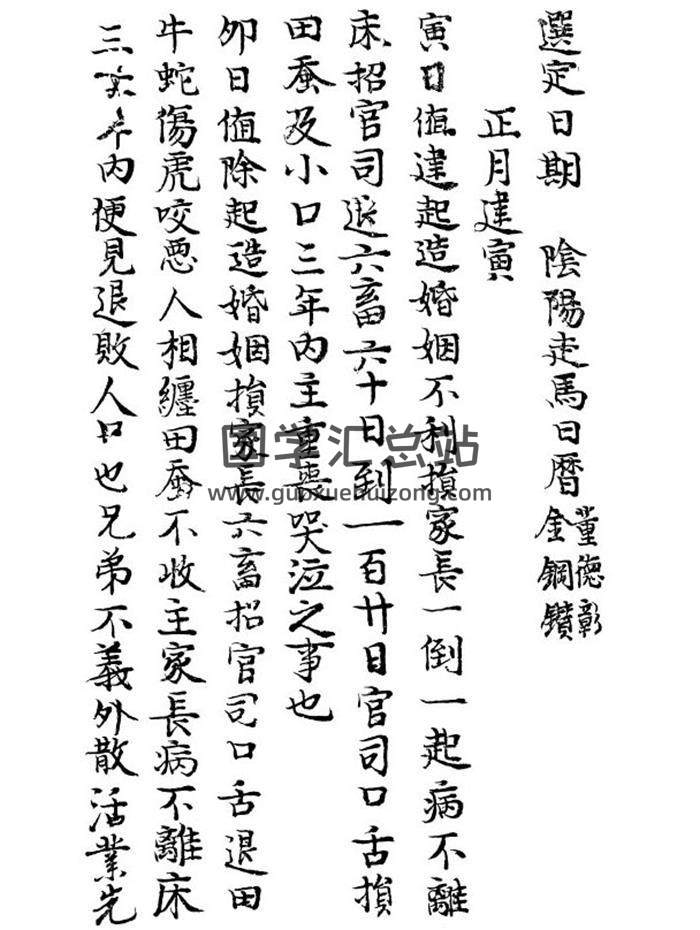 選定日期　陰陽走馬日暦　董德彰
金鋼鑚
正月建寅
寅日值建起造婚姻不利損家長一倒一起病不離
床招官司退六畜六十日到一百廿日官司口舌損
田蚕及小口三年内主重喪哭泣之事也
卯日值除起造婚姻損家長六畜招官司口舌退田
牛蛇傷虎咬惡人相纏田蚕不收主家長病不離床
三六年内便見退敗人口也兄弟不義外散活業先
国学汇总站
www.guoxuehuizong.com